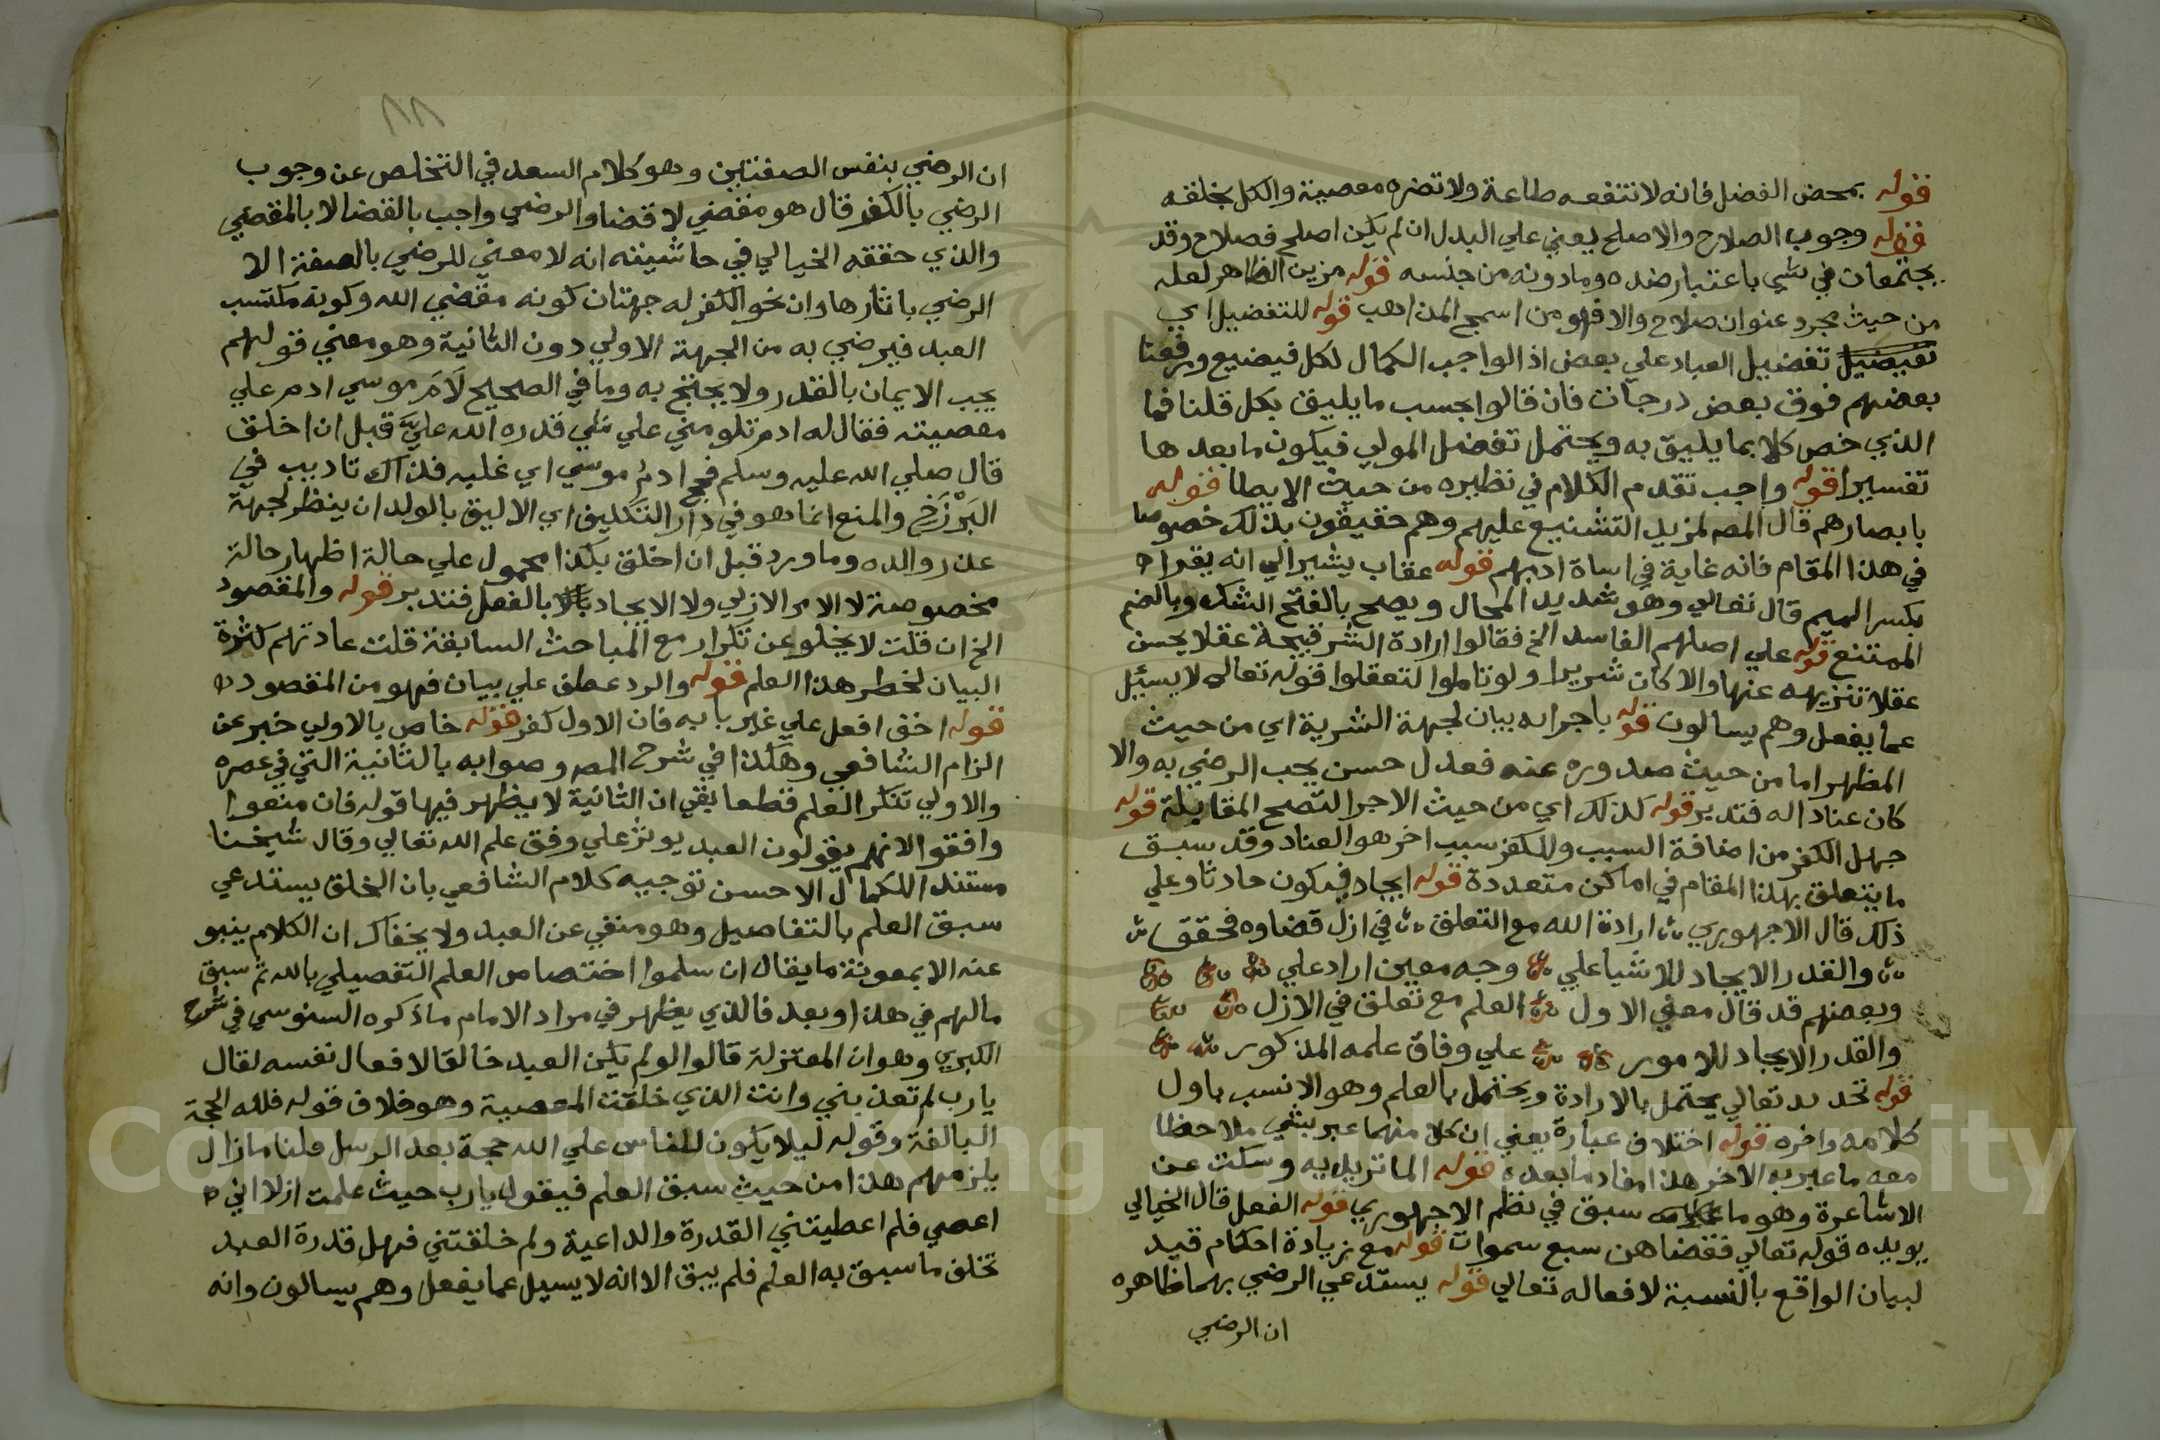 قوله بمحض الفضل فانه لا تنفعه طاعة ولا تضره معصية والكل بخلقه
قوله وجوب الصلاح والاصلح يعني علي البدل ان لم يكن اصلح فصلاح وقد
يجتمعان في شي باعتبار ضده وما دونه من جنسه قوله مزين الظاهر لعله
من حيث مجرد عنوان صلاح والا فهو من اسمج المذاهب قوله للتفضيل اي
تفضيل العباد علي بعض اذ الواجب الكمال لكل فيضيع ورفعنا
بعضهم فوق بعض درجات فان قالوا بحسب ما يليق بكل قلنا فما
الذي خص كلا بما يليق به ويحتمل تفضل المولي فيكون ما بعدها
تفسيرا قوله واجب تقدم الكلام في نظيره من حيث الايطا قوله
بابصارهم قال المصه لمزيد التشنيع عليهم وهم حقيقون بذلك خصوصا
في هذا المقام فانه غاية في اساة ادبهم قوله عقاب يشير الي انه يقرا
بكسر الميم قال تعالي وهو شديد المحال ويصح بالفتح الشك وبالضم
الممتنع قوله علي اصلهم الفاسد الخ فقالوا ارادة الشر قبيحة عقلا يحسن
عقلا تنزيهه عنها والا كان شريرا ولو تاملوا لتعقلوا قوله تعالي لا يسئل
عما يفعل وهم يسالون قوله باجرايه بيان لجهة الشرية اي من حيث
المظهر اما من حيث صدوره عنه فعدل حسن يجب الرضي به والا
كان عنادا له فتدبر قوله كذلك اي من حيث الاجرا لتصح المقابلة قوله
جهل الكفر من اضافة السبب وللكفر سبب اخر هو العناد وقد سبق
ما يتعلق بهذا المقام في اماكن متعددة قوله ايجاد فيكون حادثا وعلي
ذلك قال الاجهوري ارادة الله مع التعلق في ازل قضاوه فحقق
والقدر الايجاد للاشيا علي وجه معين اراد علي
وبعضهم قد قال معني الاول العلم مع تعلق في الازل
والقدر الايجاد للامور علي وفاق علمه المذكور
قوله تحديد تعالي يحتمل بالارادة ويحتمل بالعلم وهو الانسب باول
كلامه واخره قوله اختلاف عبارة يعني ان كلا منهما عبر بشي ملاحظا
معه ما عبر به الاخر هذا مفاد ما بعده قوله الماتريديه وسكت عن
الاشاعرة وهو ما سبق في نظم الاجهوري قوله الفعل قال الخيالي
يويده قوله تعالي فقضاهن سبع سموات قوله مع زيادة احكام قيد
لبيان الواقع بالنسبة لافعاله تعالي قوله يستدعي الرضي بهما ظاهره
ان الرضي
ان الرضي بنفس الصفتين وهو كلام السعد في التخلص عن وجوب
الرضي بالكفر قال هو مقضي لا قضا والرضي واجب بالقضا لا بالمقضي
والذي حققه الخيالي في حاشيته انه لا معني للرضي بالصفة الا
الرضي باثارها وان نحو الكفر له جهتان كونه مقضي الله وكونه مكتسب
العبد فيرضي به من الجهة الاولي دون الثانية وهو معني قولهم
يجب الايمان بالقدر ولا يحتج به وما في الصحيح لام موسي ادم علي
معصيته فقال له ادم تلومني علي شي قدره الله علي قبل ان اخلق
قال صلي الله عليه وسلم فحج ادم موسي اي غلبه فذاك تاديب في
البرزخ والمنع انما هو في دار التكليف اي الاليق بالولد ان ينظر لجهة
عذر والده وما ورد قبل ان اخلق بكذا محمول علي حالة اظهار حالة
مخصوصة لا الامر الازلي ولا الايجاد بالفعل فتدبر قوله والمقصود
الخ ان قلت لا يخلو عن تكرار مع المباحث السابقة قلت عادتهم كثرة
البيان لخطر هذا العلم قوله والرد عطف علي بيان فهو من المقصود
قوله اخق افعل علي غير بابه فان الاول كفر قوله خاص بالاولي خبر عن
الزام الشافعي وهكذا في شرح المصه وصوابه بالثانية التي في عصره
والاولي تنكر العلم قطعا بقي ان الثانية لا يظهر فيها قوله فان منعوا
وافقوا الا نهم يقولون العبد يوثر علي وفق علم الله تعالي وقال شيخنا
مستندا للكمال الاحسن توجيه كلام الشافعي بان الخلق يستدعي
سبق العلم بالتفاصيل وهو منفي عن العبد ولا يخفاك ان الكلام ينبو
عنه الا بمعونة ما يقال ان سلموا اختصاص العلم التفصيلي بالله تم سبق
مالهم في هذا وبعد فالذي يظهر في مراد الامام ما ذكره السنوسي في شرح
الكبري وهو ان المعتزلة قالوا لو لم يكن العبد خالقا لافعال نفسه لقال
يا رب لم تعذبني وانت الذي خلقت المعصية وهو خلاف قوله فلله الحجة
البالغة وقوله ليلا يكون للناس علي الله حجة بعد الرسل قلنا ما زال
يلزمهم هذا من حيث سبق العلم فيقول يا رب حيث علمت ازلا اني
اعصي فلم اعطيتني القدرة والداعية ولم خلقتني فهل قدرة العبد
تخلف ما سبق به العلم فلم يبق الا انه لا يسيل عما يفعل وهم يسالون وانه